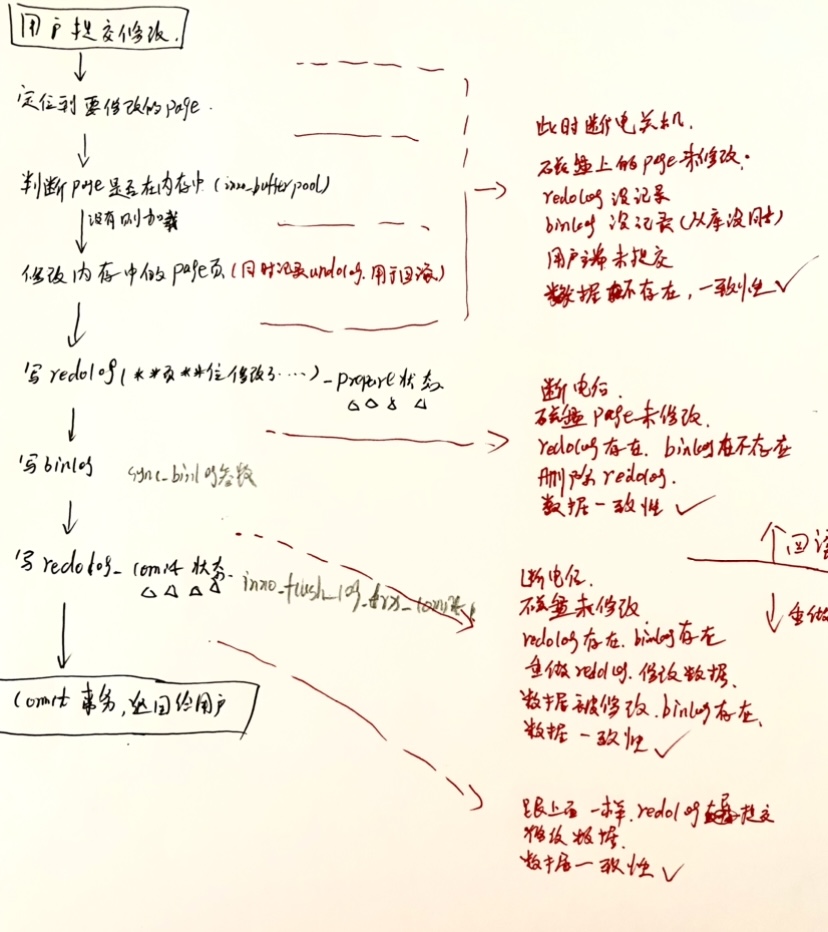 用户提交修改.
定位到要修改的page.
判断page是否在内存中(inno_bufferpool)
没有则加载
修改内存中的page页(同时记录undolog,用于回滚)
写redolog(**页**位修改了……)-prepare状态
写binlog
sync_binlog参数
写redolog-comit状态
inno_flush_log_trx_comit
comit事务,返回给用户
此时断电关机.
磁盘上的page未修改.
redolog没记录
binlog没记录(从库没同步)
用户端未提交
数据不存在,一致性✓
断电后.
磁盘page未修改.
redolog存在.binlog不存在
删除redolog.
数据一致性✓
断电后.
磁盘未修改
redolog存在.binlog存在
重做redolog.修改数据.
数据被修改.binlog存在,
数据一致性✓
跟上面一样.redolog提交
修改数据.
数据一致性✓
个回滚
重做